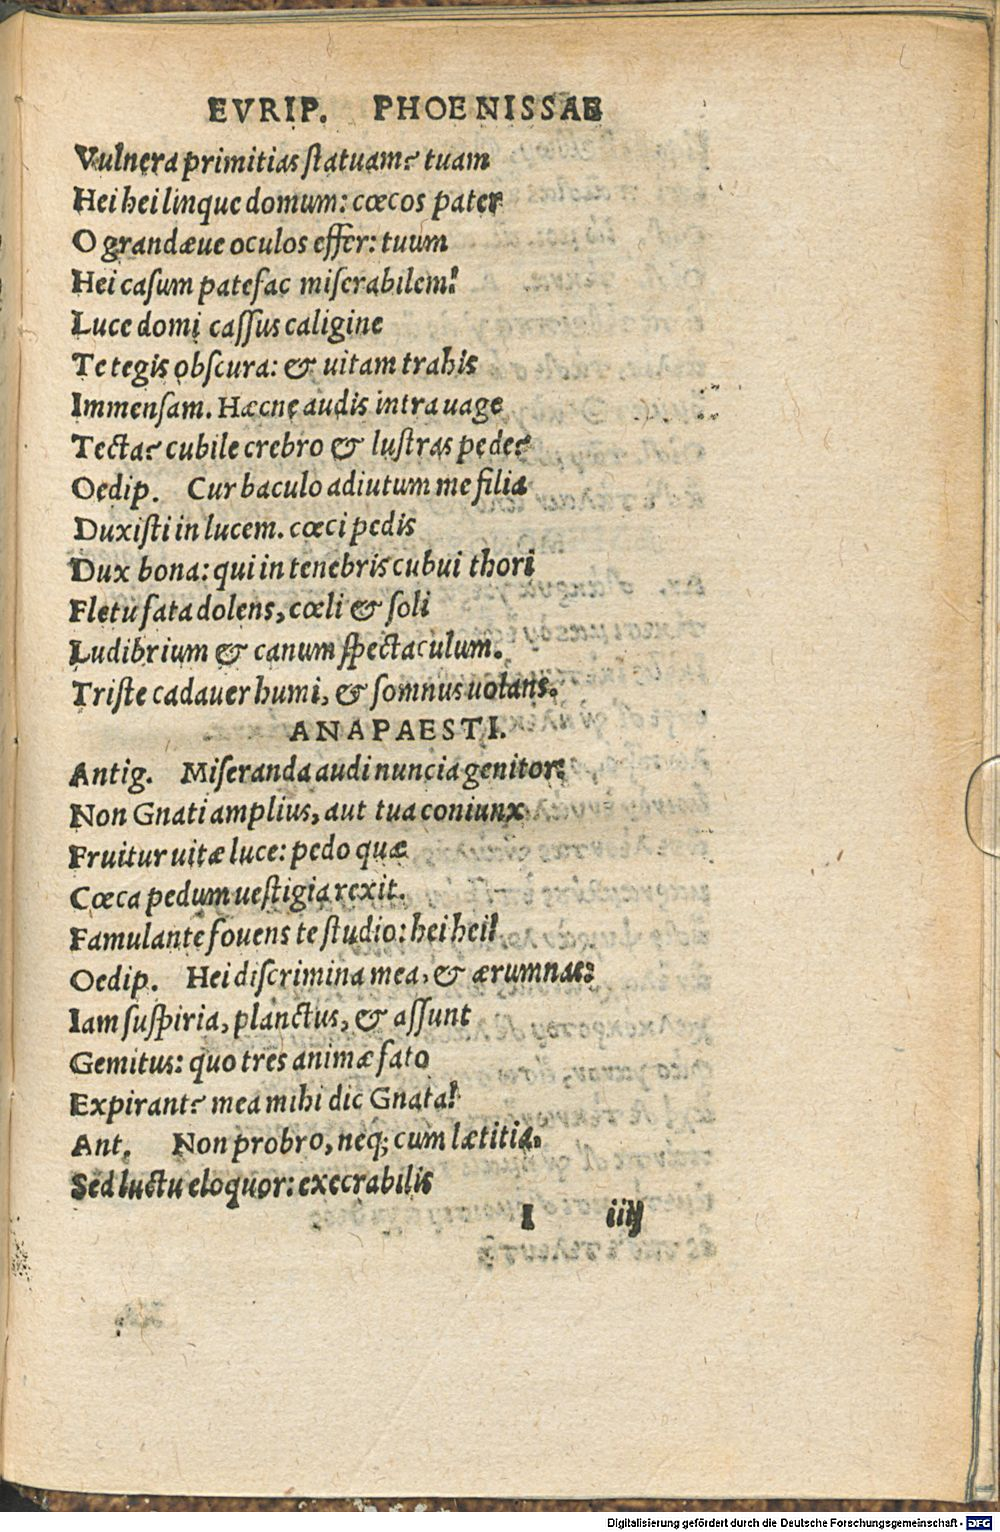 EVRIP. PHOENISSAE
Vulnera primitias statuam? tuam
Hei hei linque domum: cœcos pater
O grandæue oculos effer: tuum
Hei casum patefac miserabilem!
Luce domi cassus caligine
Te tegis obscura: & uitam trahis
Immensam. Hæcne audis intra uage
Tecta? cubile crebro & lustras pede?
Oedip. Cur baculo adiutum me filia
Duxisti in lucem. cœci pedis
Dux bona: qui in tenebris cubui thori
Fletu fata dolens, cœli & soli
Ludibrium & canum spectaculum.
Triste cadauer humi, & somnus uolans.
ANAPAESTI.
Antig. Miseranda audi nuncia genitor:
Non Gnati amplius, aut tua coniunx
Fruitur uitæ luce: pedo quæ
Cœca pedum uestigia rexit.
Famulante fouens te studio: hei hei!
Oedip. Hei discrimina mea, & ærumnae?
Iam suspiria, planctus, & assunt
Gemitus: quo tres animæ fato
Expirant? mea mihi dic Gnata!
Ant. Non probro, neq; cum lætitia.
Sed luctu eloquor: execrabilis
I iiij
Digitalisierung gefördert durch die Deutsche Forschungsgemeinschaft - DFG